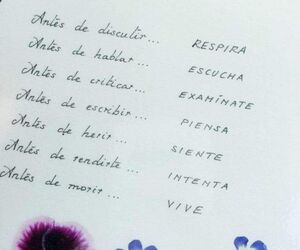 Antes de discutir... RESPIRA
Antes de hablar... ESCUCHA
Antes de criticar... EXAMÍNATE
Antes de escribir... PIENSA
Antes de herir... SIENTE
Antes de rendirte... INTENTA
Antes de morir... VIVE